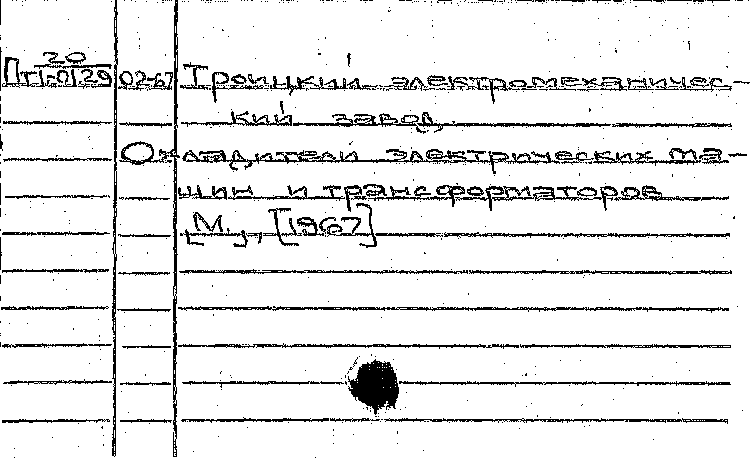 20
Пт1-0129 02-67 Троицкий электромеханичес-
кий завод.
Охладители электрических ма-
шин и трансформаторов
[М.], [1967]